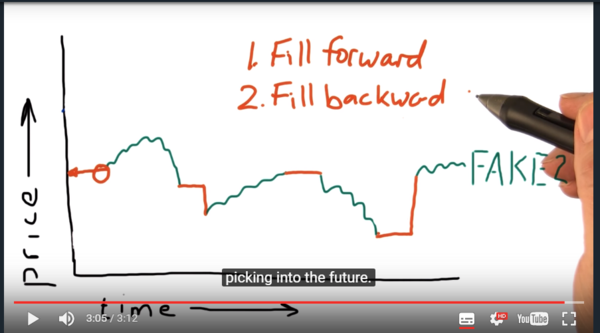 1. Fill forward
2. Fill backwad
price
FAKE2
picking into the future.
time
3:05 / 3:12
HD
YouTube